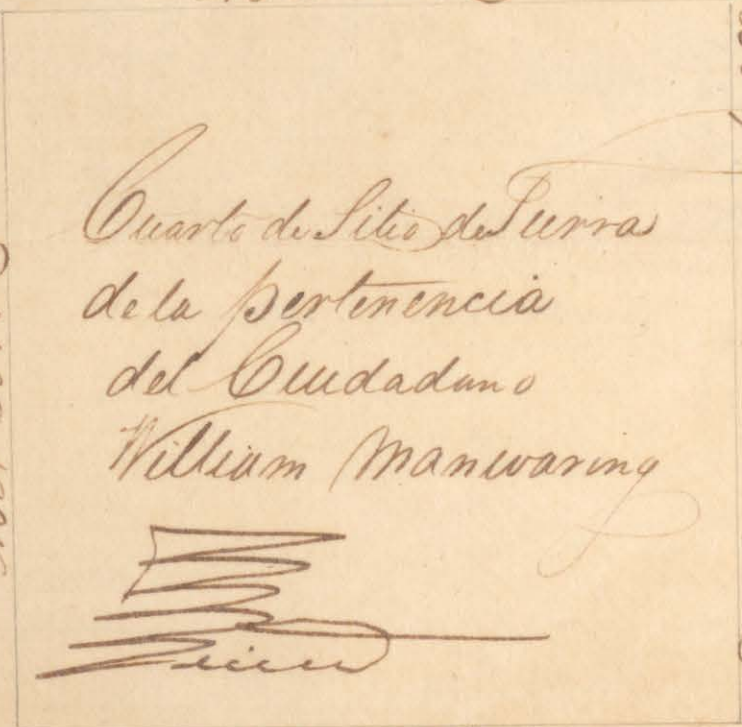 Cuarto de Sitio de Tierra
de la pertenencia
del Ciudadano
William Manwaring